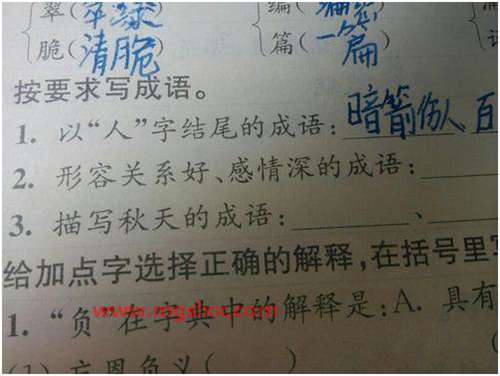 翠(翠绿) 编(
脆(清脆) 篇(一篇)
按要求写成语。
1. 以“人”字结尾的成语:暗箭伤人、百
2. 形容关系好、感情深的成语:
3. 描写秋天的成语:______、
给加点字选择正确的解释,在括号里写
1. “负”在字典中的解释是:A. 具有
(1) 忘恩负义( )